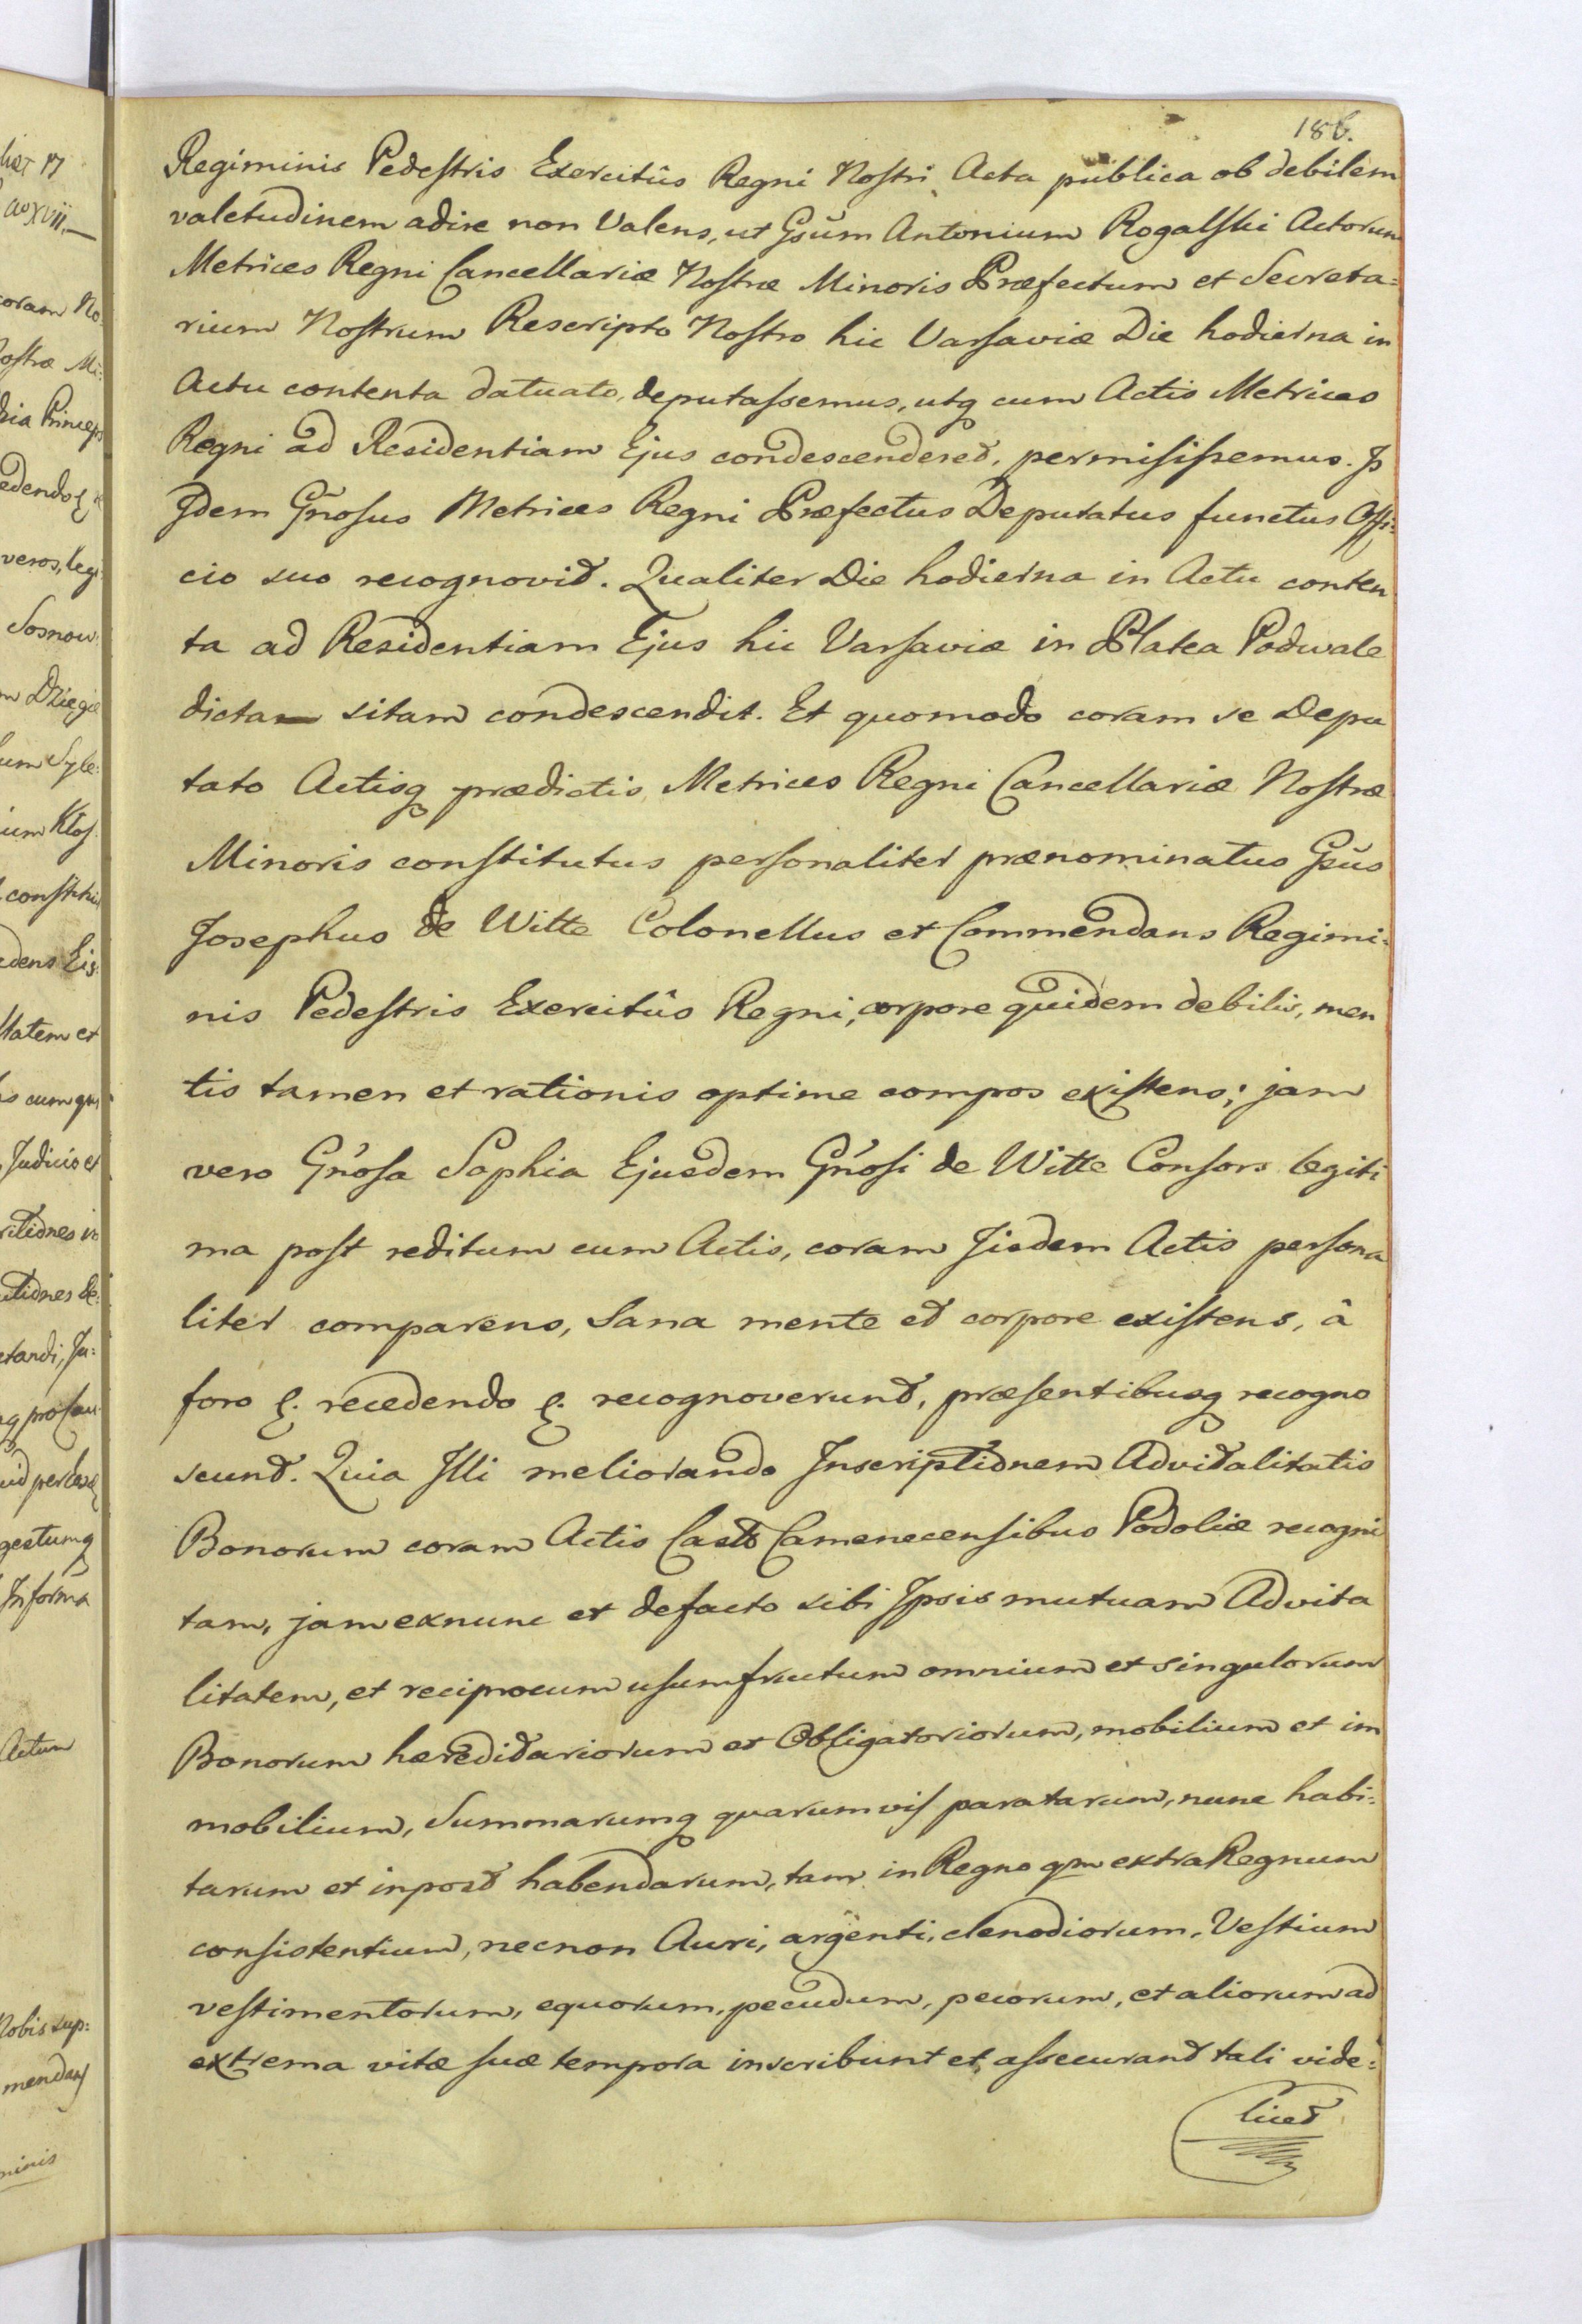 186.
Regiminis Pedestris Exercitûs Regni Nostri Acta publica ob debilem
valetudinem adire non Valens, ut Gsum Antonium Rogalski Actorum
Metrices Regni Cancellariæ Nostræ Minoris Præfectum et Secreta=
rium Nostrum Rescripto Nostro hic Varsaviæ Die hodierna in
Actu contenta datuato, deputassemus, utq cum Actis Metrices
Regni ad Residentiam Ejus condescenderet, permisissemus. Is
Idem Gnosus Metrices Regni Præfectus Deputatus functus Offi=
cio suo recognovit. Qualiter Die hodierna in Actu conten
ta ad Residentiam Ejus hic Varsaviæ in Platea Podwale
dicta sitam condescendit. Et quomodo coram se Depu
tato Actisq prædictis Metrices Regni Cancellariæ Nostræ
Minoris constitutus personaliter prænominatus Gsus
Josephus de Witte Colonellus et Commendans Regimi=
nis Pedestris Exercitûs Regni, corpore quidem debilis, men
tis tamen et rationis optime compos existens; jam
vero Gnosa Sophia Ejusdem Gnosi de Witte Consors legiti
ma post reditum cum Actis, coram Iisdem Actis persona
liter comparens, Sana mente et corpore existens, â
foro &. recedendo &. recognoverunt, præsentibusq recogno
scunt. Quia Illi meliorando Inscriptionem Advitalitatis
Bonorum coram Actis Castr Camenecensibus Podoliæ recogni
tam, jam exnunc et defacto sibi Ipsis mutuam Advita
litatem, et reciprocum usumfructum omnium et singulorum
Bonorum hæreditariorum et Obligatoriorum, mobilium et im
mobilium, Summarumq quarumvis paratarum, nunc habi=
tarum et inpost habendarum, tam in Regno qm extra Regnum
consistentium, necnon Auri, argenti, clenodiorum, Vestium
vestimentorum, equorum, pecudum, pecorum, et aliorum ad
extrema vitæ suæ tempora inscribunt et assecurant tali vide=
licet